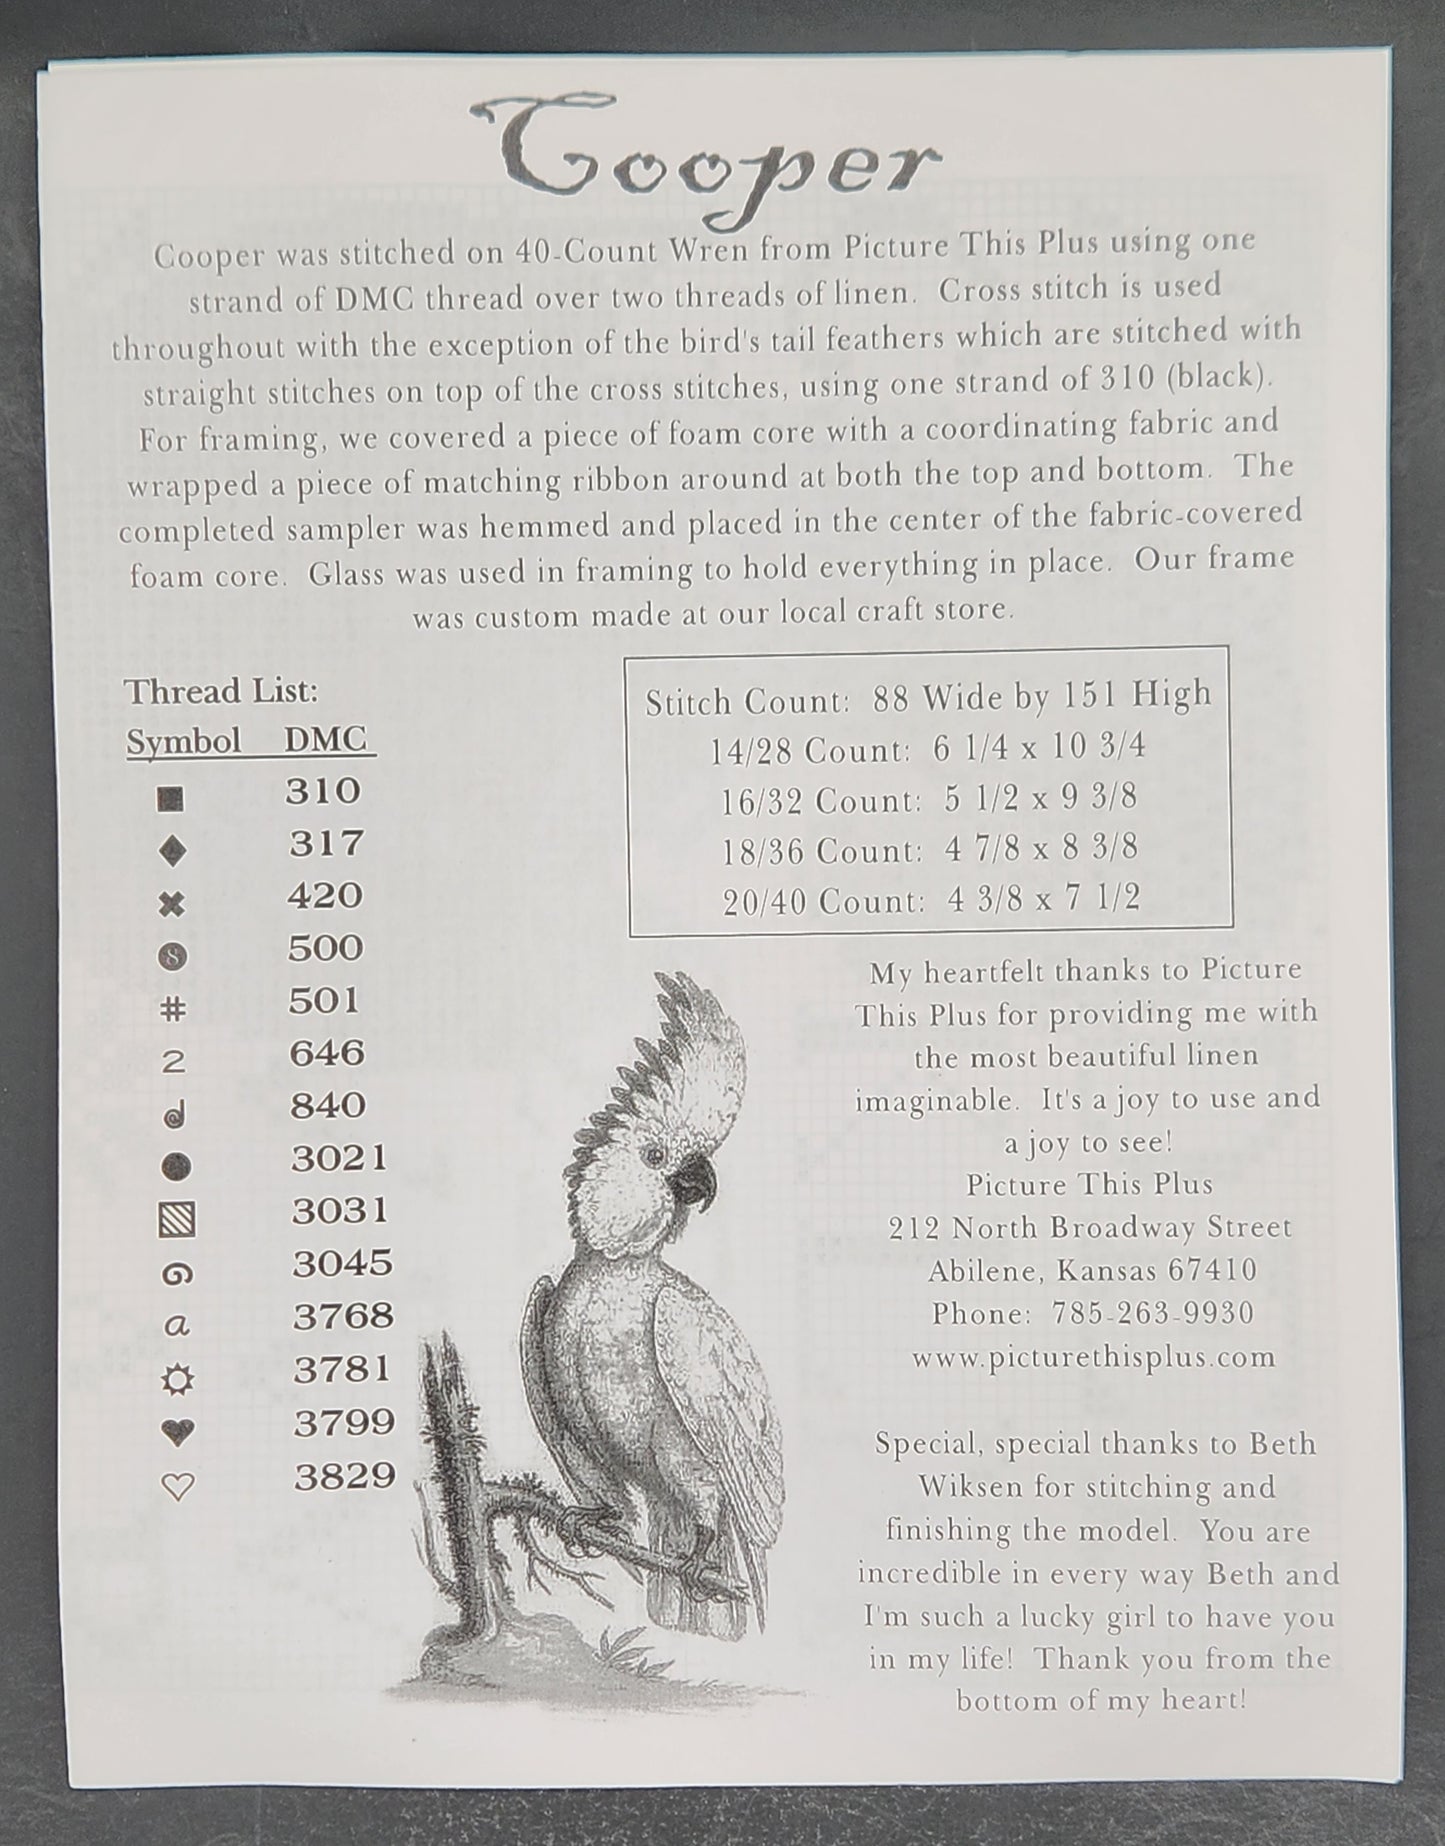 Cooper
Cooper was stitched on 40-Count Wren from Picture This Plus using one
strand of DMC thread over two threads of linen.  Cross stitch is used
throughout with the exception of the bird's tail feathers which are stitched with
straight stitches on top of the cross stitches, using one strand of 310 (black).
For framing, we covered a piece of foam core with a coordinating fabric and
wrapped a piece of matching ribbon around at both the top and bottom.  The
completed sampler was hemmed and placed in the center of the fabric-covered
foam core.  Glass was used in framing to hold everything in place.  Our frame
was custom made at our local craft store.
Thread List:
Symbol DMC
■ 310
◆ 317
✖ 420
8 500
# 501
2 646
d 840
● 3021
▧ 3031
3045
a 3768
☼ 3781
♥ 3799
♡ 3829
Stitch Count:  88 Wide by 151 High
14/28 Count:  6 1/4 x 10 3/4
16/32 Count:  5 1/2 x 9 3/8
18/36 Count:  4 7/8 x 8 3/8
20/40 Count:  4 3/8 x 7 1/2
My heartfelt thanks to Picture
This Plus for providing me with
the most beautiful linen
imaginable.  It's a joy to use and
a joy to see!
Picture This Plus
212 North Broadway Street
Abilene, Kansas 67410
Phone:  785-263-9930
www.picturethisplus.com
Special, special thanks to Beth
Wiksen for stitching and
finishing the model.  You are
incredible in every way Beth and
I'm such a lucky girl to have you
in my life!  Thank you from the
bottom of my heart!